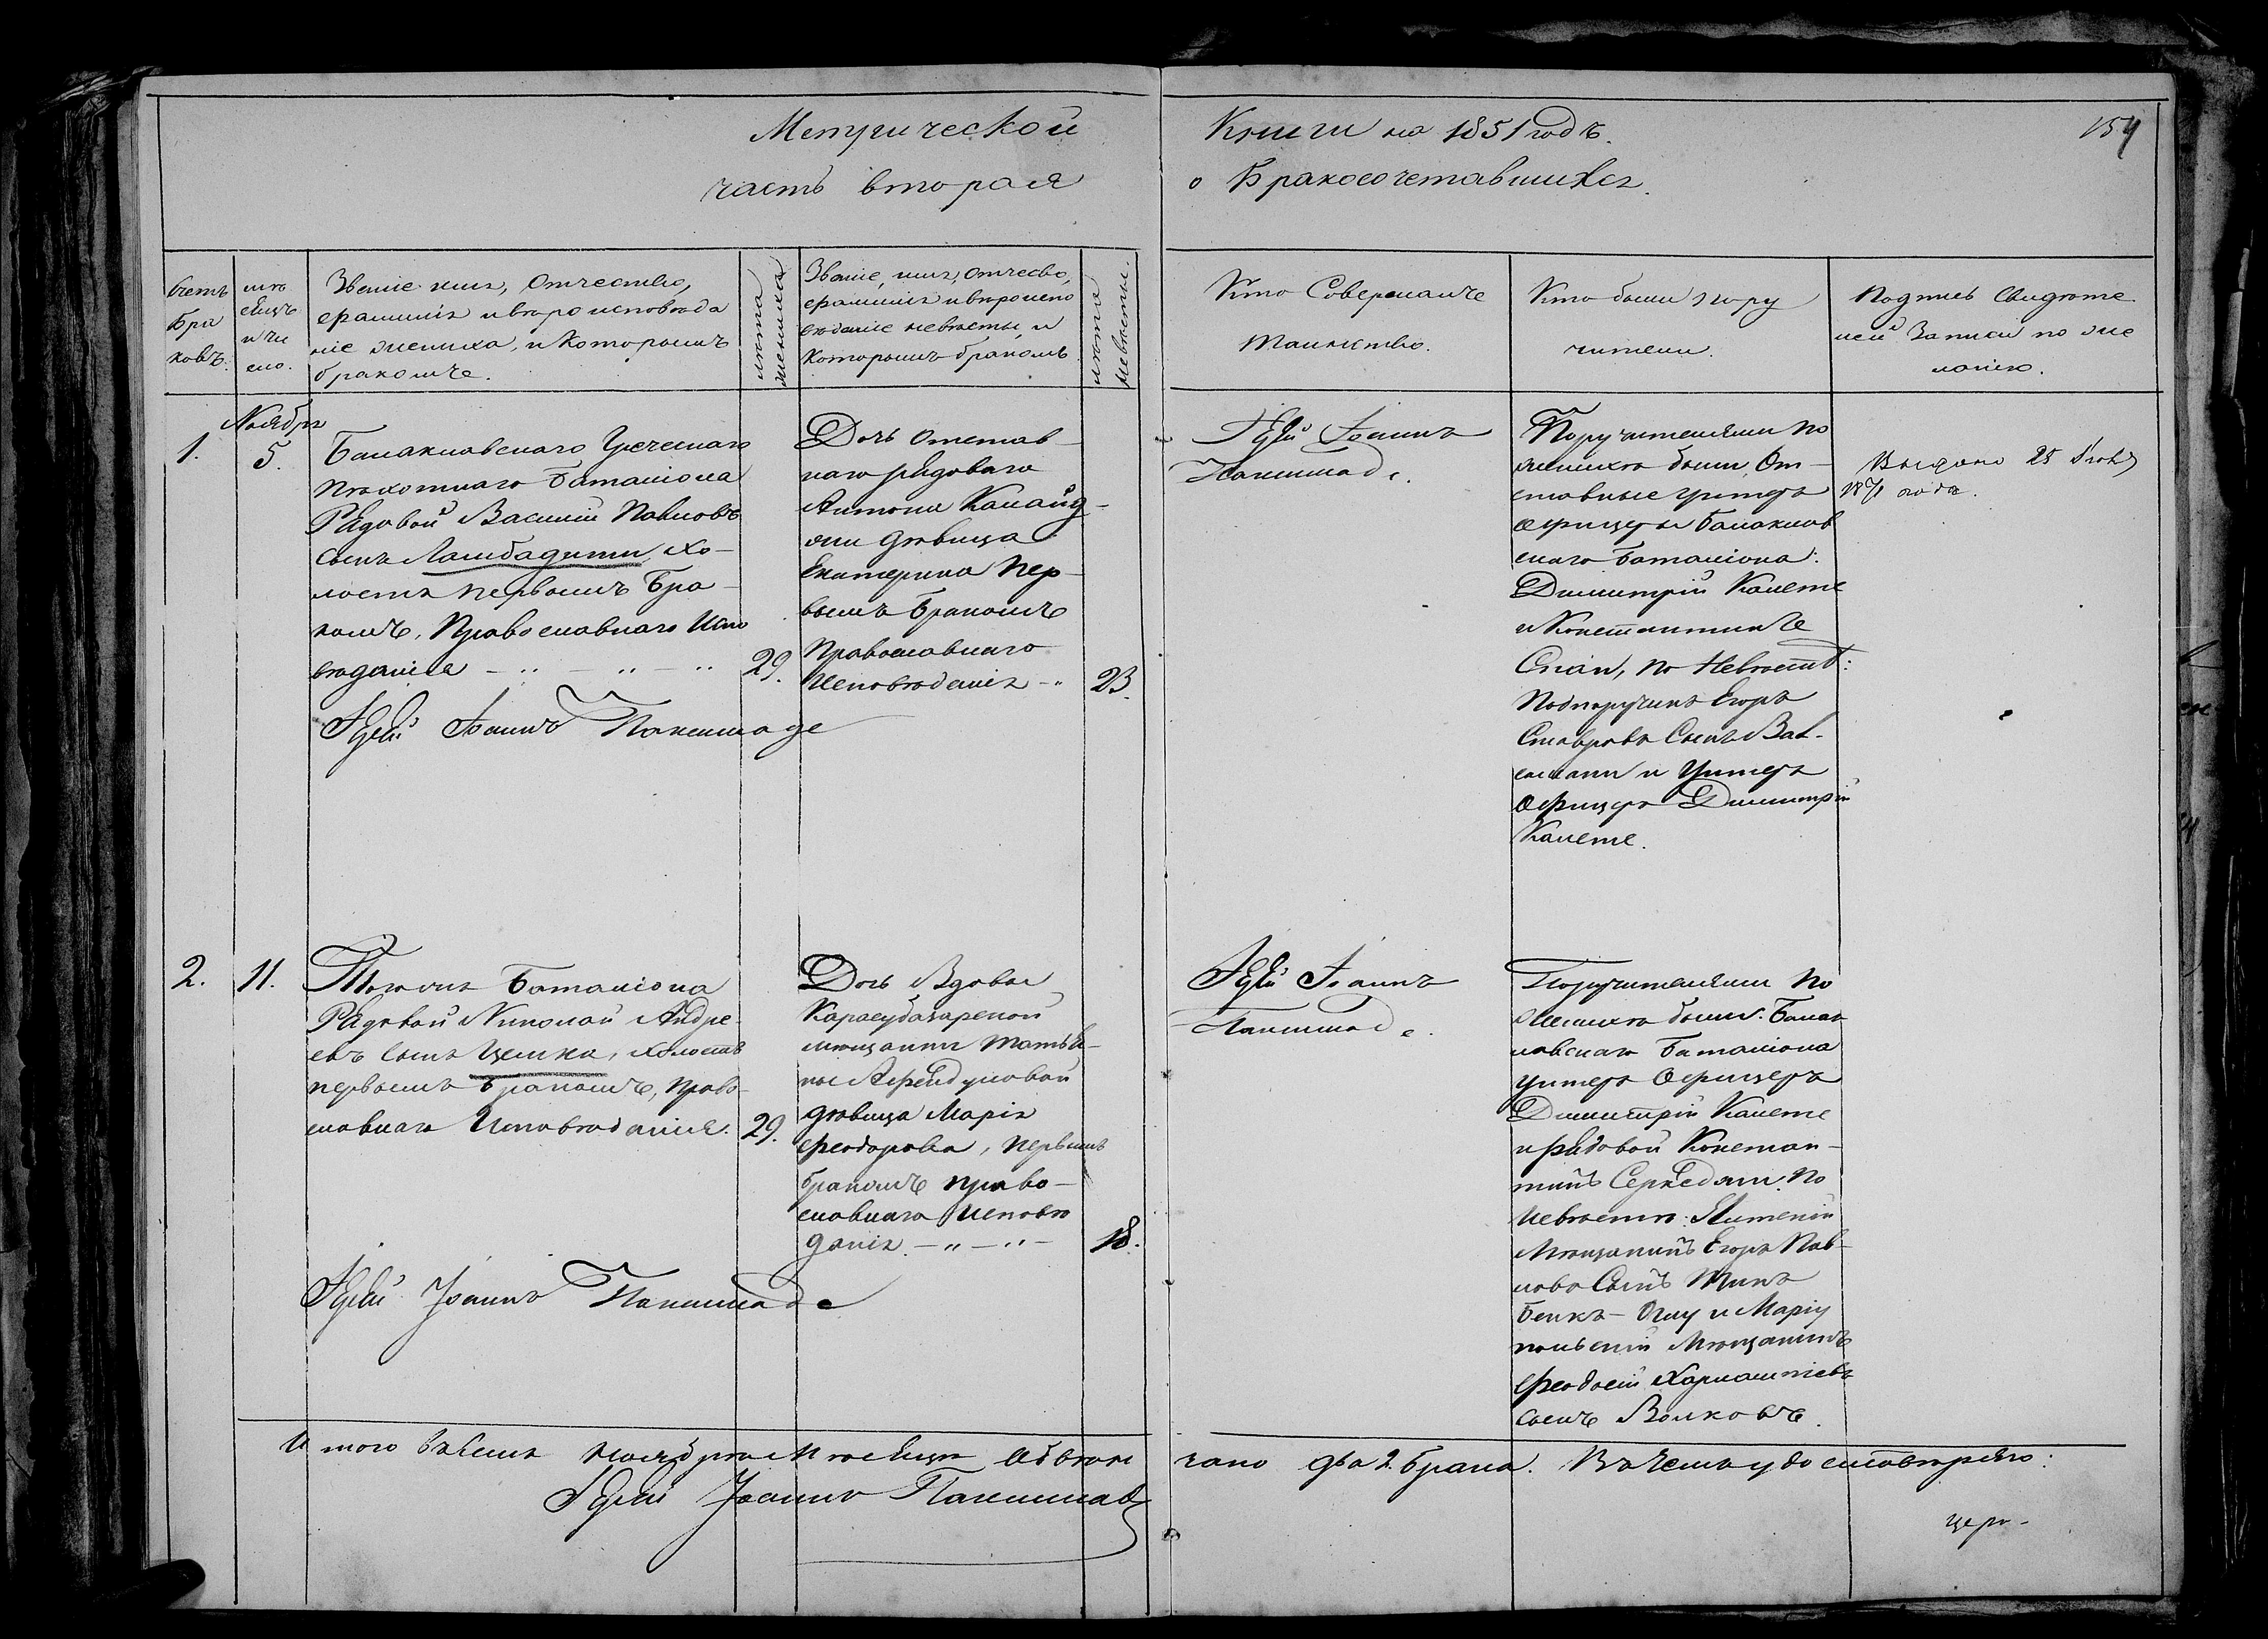 Метрической
часть вторая
Книги на 1851 годъ.
о Бракосочетавшихся.
154
Счетъ
Бра
ковъ.
мѣ
сяцъ
и чи
сло.
Званіе имя, Отчество,
фамилія и вѣроисповѣда
ніе жениха, и которымъ
бракомъ.
лѣта
жениха
Званіе, имя, Отчесво,
фамилія и вѣроиспо
вѣданіе невѣсты и
которымъ бракомъ
лѣта
невѣсты.
Кто Совершалъ
Таинство.
Кто были пору
чители.
Подпись Свидѣте
лей Записи по же
ланію.
1.
Ноября
5.
Балаклавскаго Греческаго
пѣхотнаго Баталіона
Рядовой Василій Павловъ
сынъ Ламбадити, хо-
лостъ первымъ Бра-
комъ, Православнаго Испо
вѣданія
29.
Дочь Отстав
наго рядоваго
Антона
дѣвица
Екатерина пер-
вымъ Бракомъ
Православнаго
Исповѣданія
23.
Іерей Іоаннъ
Іерей Іоаннъ
Поручителями по
женихѣ были От-
ставные унтеръ
офицеры Балаклав
скаго Баталіона:
Димитрій Калете
и Константинъ
по Невѣстѣ:
Подпоручикъ Егоръ
Ставровъ Сынъ
и Унтеръ
Офицеръ Димитрій
Калете.
Выдано 25
1871 года.
2.
11.
Тогожъ Баталіона
Рядовой Николай Андре
евъ сынъ Целика, холостъ
первымъ Бракомъ, Право-
славнаго Исповѣданія.
29.
Дочь Вдовы
Карасубазарской
мѣщанки Татья-
ны
дѣвица Марія
Феодорова, первымъ
бракомъ право-
славнаго Исповѣ
данія
18.
Іерей Іоаннъ
Іерей Іоаннъ
Поручителями по
женихѣ были: Балак
лавскаго Баталіона
унтеръ Офицеръ
Димитрій Калете
и рядовой Констан-
тинъ по
Невѣстѣ:
Мѣщанинъ Егоръ Пав-
ловъ Сынъ
и Маріу
польскій Мѣщанинъ
Феодосій
сынъ Волковъ.
И того въ семъ ноябрѣ Мѣсяцѣ Обвѣн
чано два 2. брака. Въ чемъ удостовѣряю:
Іерей Іоаннъ
церк-